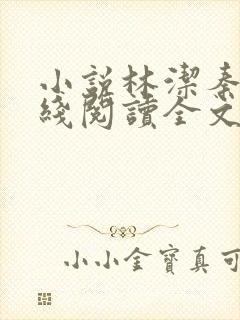 小說林潔秦
綫閱讀全文
小小金寶真可